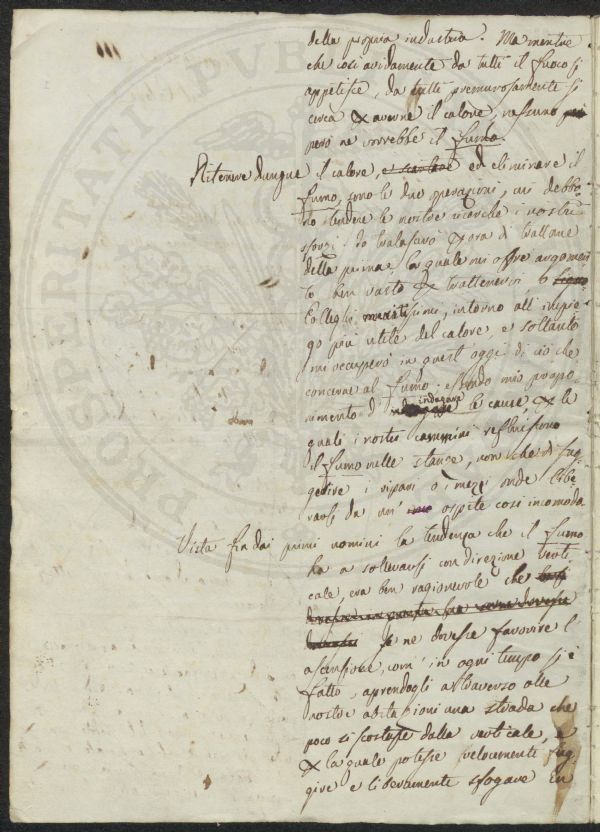 della propria industria. Ma mentre
che così avidamente da tutti il fuoco si
appetisce, da tutti premurosamente si
cerca d'averne il calore, nessuno
però ne vorrebbe il fumo.
Ritenere dunque il calore, ed eliminare il
fumo, sono le due operazioni, cui debbo-
no tendere le nostre ricerche i nostri
sforzi. Io tralascierò p ora di trattare
della prima, la quale mi offre argomen
to ben vasto p trattenervi o
Colleghi intorno all impie
go più utile del calore, e soltanto
mi occuperò in quest'oggi di ciò che
concerne al fumo: essendo mio propo-
nimento d' indagare le cause, p le
quali i nostri cammini
il fumo nelle stanze, non che di sug
gerire i ripari o i mezzi onde libe
rarsi da un' ospite così incomodo
Vista fin dai primi uomini la tendenza che il fumo
ha a sollevarsi con direzione verti
cale, era ben ragionevole che
se ne dovesse favorire l'
ascensione, com' in ogni tempo si è
fatto, aprendogli attraverso alle
nostre abitazioni una strada che
poco si scostasse dalla verticale, e
p la quale potesse velocemente fug
gire e liberamente sfogare
PROSPERITATI PUBL